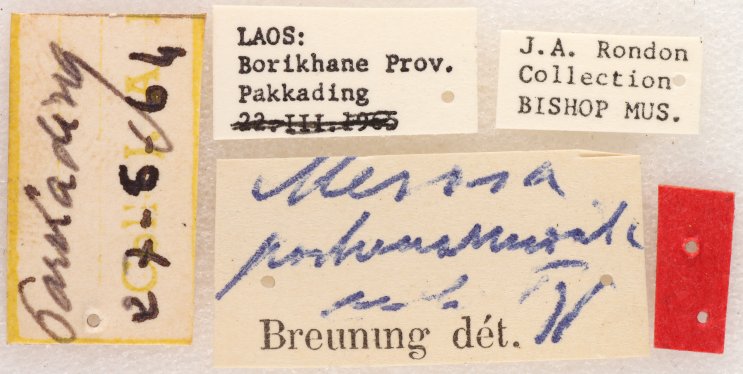 Pakkading
27-5-64
LAOS:
Borikhane Prov.
Pakkading
22.III.1965
J.A. Rondon
Collection
BISHOP MUS.
Mesosa
postmarmorata
Breuning dét.